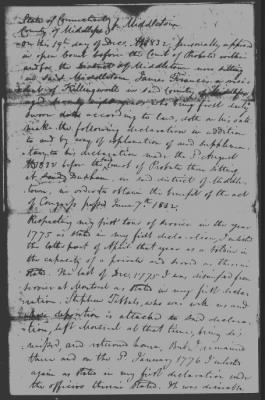 State of Connecticut
County of Middlesex } ss. Middletown
On the 19th day of Decr. 1832, personally appeared
in open Court before the Court of Probate within
and for the District of Middletown now sitting
at said Middletown, James Francis, a resi-
dent of Killingworth in said County of Middlesex
aged seventy eight years who being first duly
sworn doth according to law, doth on his oath
make the following declaration in addition
to and by way of explanation of and supplemen-
tary to his declaration made the 1st August
1832 before the Court of Probate then sitting
at said Durham, in said district of Middle-
town, in order to obtain the benefit of the act
of Congress passed June 7th 1832.
Respecting my first tour of service in the year
1775 as stated in my first declaration, I enlisted
the latter part of April that year as a soldier in
the capacity of a private and served as therein
stated. The last of Decr 1775 I was dismissed from
service at Montreal as stated in my first decla-
ration. Stephen Tibbals, who was with us and
whose deposition is attached to said declara-
tion, left Montreal at that time, being dis-
missed, and returned home, But I remained
there and on the 1st January 1776 I enlisted
again as stated in my first declaration under
the officers therein stated. It was desirable